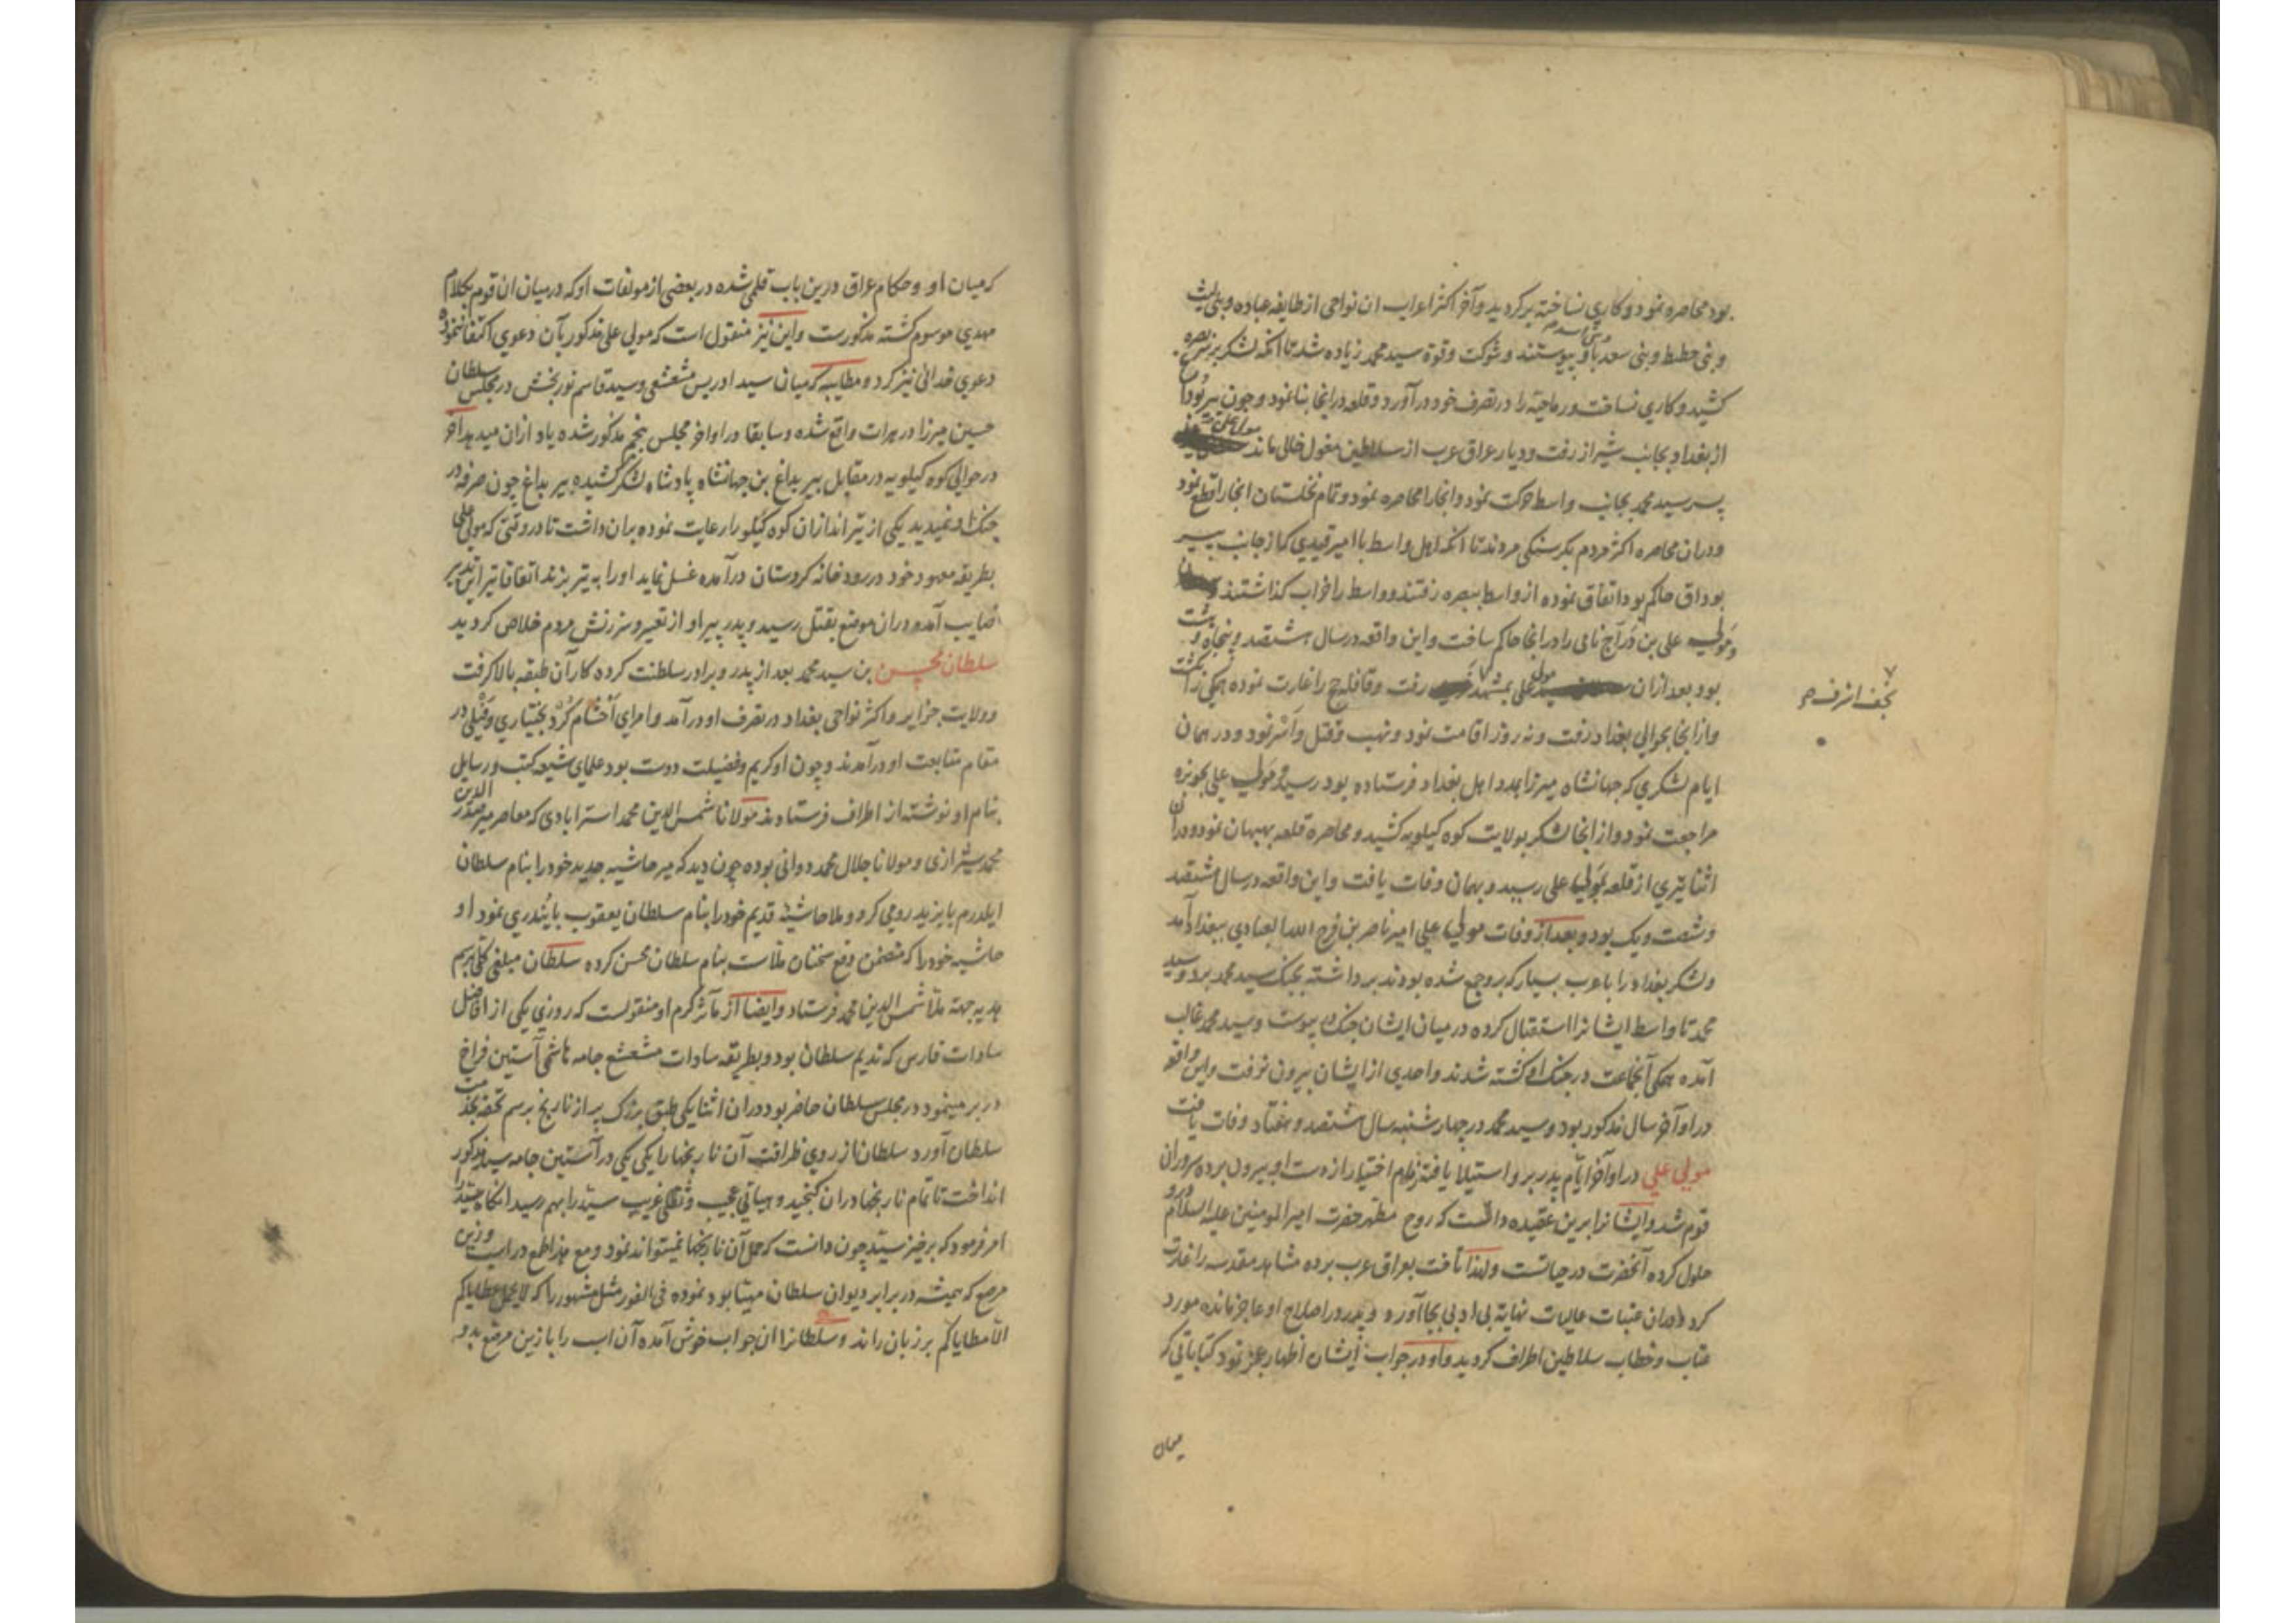 بود محاصره نمود و کاری نساخته برکردید و آخر اکثر اعراب ان نواحی از طایفه عباده و بنی لیث
و بنی حطیط و بنی سعد باو پیوستند و شوکت و قوة سید محمد زیاده شد تا انکه لشکر بر بصره
کشید و کاری نساخت و رماحیه را در تصرف خود در آورد و قلعه در انجا بنا نمود و چون
از بغداد بجانب شیراز رفت و دیار عراق عرب از سلاطین مغول خالی ماند مولی علی
پسر سید محمد بجانب واسط حرکت نمود و انجا را محاصره نمود و تمام نخلستان انجا را قطع نمود
و دران محاصره اکثر مردم بکرسنکی مردند تا انکه اهل واسط با امیر قیدی که از جانب پیر
بوداق حاکم بود اتفاق نموده از واسط ببصره رفتند و واسط را خراب کذاشتند
و مولی علی بن دراج نامی را در انجا حاکم ساخت و این واقعه در سال هشتصد و پنجاه و هشت
بود بعد ازان مولی علی بمشهد رفت و قافله حج را غارت نموده همکی را کشت
نجف اشرف
و از انجا بحوالی بغداد رفت و نه روز اقامت نمود و نهب و قتل و اسر نمود و در همان
ایام لشکری که جهانشاه میرزا بمدد اهل بغداد فرستاده بود رسید و مولی علی بحویزه
مراجعت نمود و از انجا لشکر بولایت کوه کیلویه کشید و محاصره قلعه بهبهان نمود و دران
اثنا تیری از قلعه بمولی علی رسید و بهمان وفات یافت و این واقعه در سال هشتصد
و شصت و یک بود و بعد از وفات مولی علی امیر ناصر بن فرج الله العبادی ببغداد آمد
و لشکر بغداد را با عرب بسیار که بر وی جمع شده بودند برداشته بجنک سید محمد برد و سید
محمد تا واسط ایشانرا استقبال کرده در میان ایشان جنک پیوست و سید محمد غالب
آمده همکی آنجماعت در جنک او کشته شدند و احدی از ایشان بیرون نرفت و این واقعه
در اواخر سال مذکور بود و سید محمد در چهارشنبه سال هشتصد و هفتاد وفات یافت
مولی علی در اواخر ایام پدر بر و استیلا یافته زمام اختیار از دست او بیرون برده سرور ان
قوم شد و ایشانرا برین عقیده داشت که روح مطهر حضرت امیر المومنین علیه السلام درو
حلول کرده آنحضرت در حیاتست و لهذا تاخت بعراق عرب برده مشاهد مقدسه را غارت
کرد و دران عتبات عالیات نهایة بی ادبی بجا آورد و پدر در اصلاح او عاجز مانده مورد
عتاب و خطاب سلاطین اطراف کردید و او در جواب ایشان اظهار عجز نمود کتاباتی که
میان
که میان او و حکام عراق درین باب قلمی شده در بعضی از مولفات او که در میان ان قوم بکلام
مهدی موسوم کشته مذکورست و این نیز منقول است که مولی علی مذکور بآن دعوی اکتفا ننموده
دعوی خدائی نیز کرد و مطایبه که میان سید ادریس مشعشعی و سید قاسم نوربخش در مجلس سلطان
حسین میرزا در هرات واقع شده و سابقا در اواخر مجلس پنجم مذکور شده یاد ازان میدهد آخر
در حوالی کوه کیلویه در مقابل پیر بداغ بن جهانشاه پادشاه لشکر کشیده پیر بداغ چون صرفه در
جنک او نمیدید یکی از تیراندازان کوه کیلو را رعایت نموده بران داشت تا در وقتی که مولی علی
بطریقه معهود خود در رودخانه کردستان درآمده غسل نماید او را به تیر بزند اتفاقا تیر این تدبیر
صایب آمد و دران موضع بقتل رسید و پدر پیر او از تعییر و سرزنش مردم خلاص کردید
سلطان محسن بن سید محمد بعد از پدر و برادر سلطنت کرده کار آن طبقه بالا کرفت
و ولایت جزایر و اکثر نواحی بغداد در تصرف او درآمد و امرای احشام کرد بختیاری و فیلی در
مقام متابعت او درآمدند و چون او کریم و فضیلت دوست بود علمای شیعه کتب و رسایل
بنام او نوشته از اطراف فرستادند مولانا شمس الدین محمد استرابادی که معاصر میر صدر الدین
محمد شیرازی و مولانا جلال محمد دوانی بوده چون دید که میر حاشیه جدید خود را بنام سلطان
ایلدرم بایزید رومی کرد و ملا حاشیه قدیم خود را بنام سلطان یعقوب بایندری نمود او
حاشیه خود را که متضمن دفع سخنان ملاست بنام سلطان محسن کرده سلطان مبلغی کلی برسم
هدیه جهة ملا شمس الدین محمد فرستاد و ایضا از مآثر کرم او منقولست که روزی یکی از افاضل
سادات فارس که ندیم سلطان بود و بطریقه سادات مشعشع جامه آستین فراخ
در بر مینمود در مجلس سلطان حاضر بود دران اثنا یکی طبق بزرک پر از نارنج برسم تحفه بخدمت
سلطان آورد سلطان از روی ظرافت آن نارنجها را یکی یکی در آستین جامه سید مذکور
انداخت تا تمام نارنجها دران کنجید و هیاتی عجیب و ثقلی غریب سید را بهم رسید انکاه سید را
امر فرمود که برخیز سید چون دانست که حمل آن نارنجها نمیتواند نمود و مع هذا طمع در اسب و زین
مرصع که همیشه در برابر دیوان سلطان مهیا بود نموده فی الفور مثل مشهور را که لا یحمل عطایاکم
الا مطایاکم بر زبان راند و سلطانرا ان جواب خوش آمده آن اسب را با زین مرصع بدو